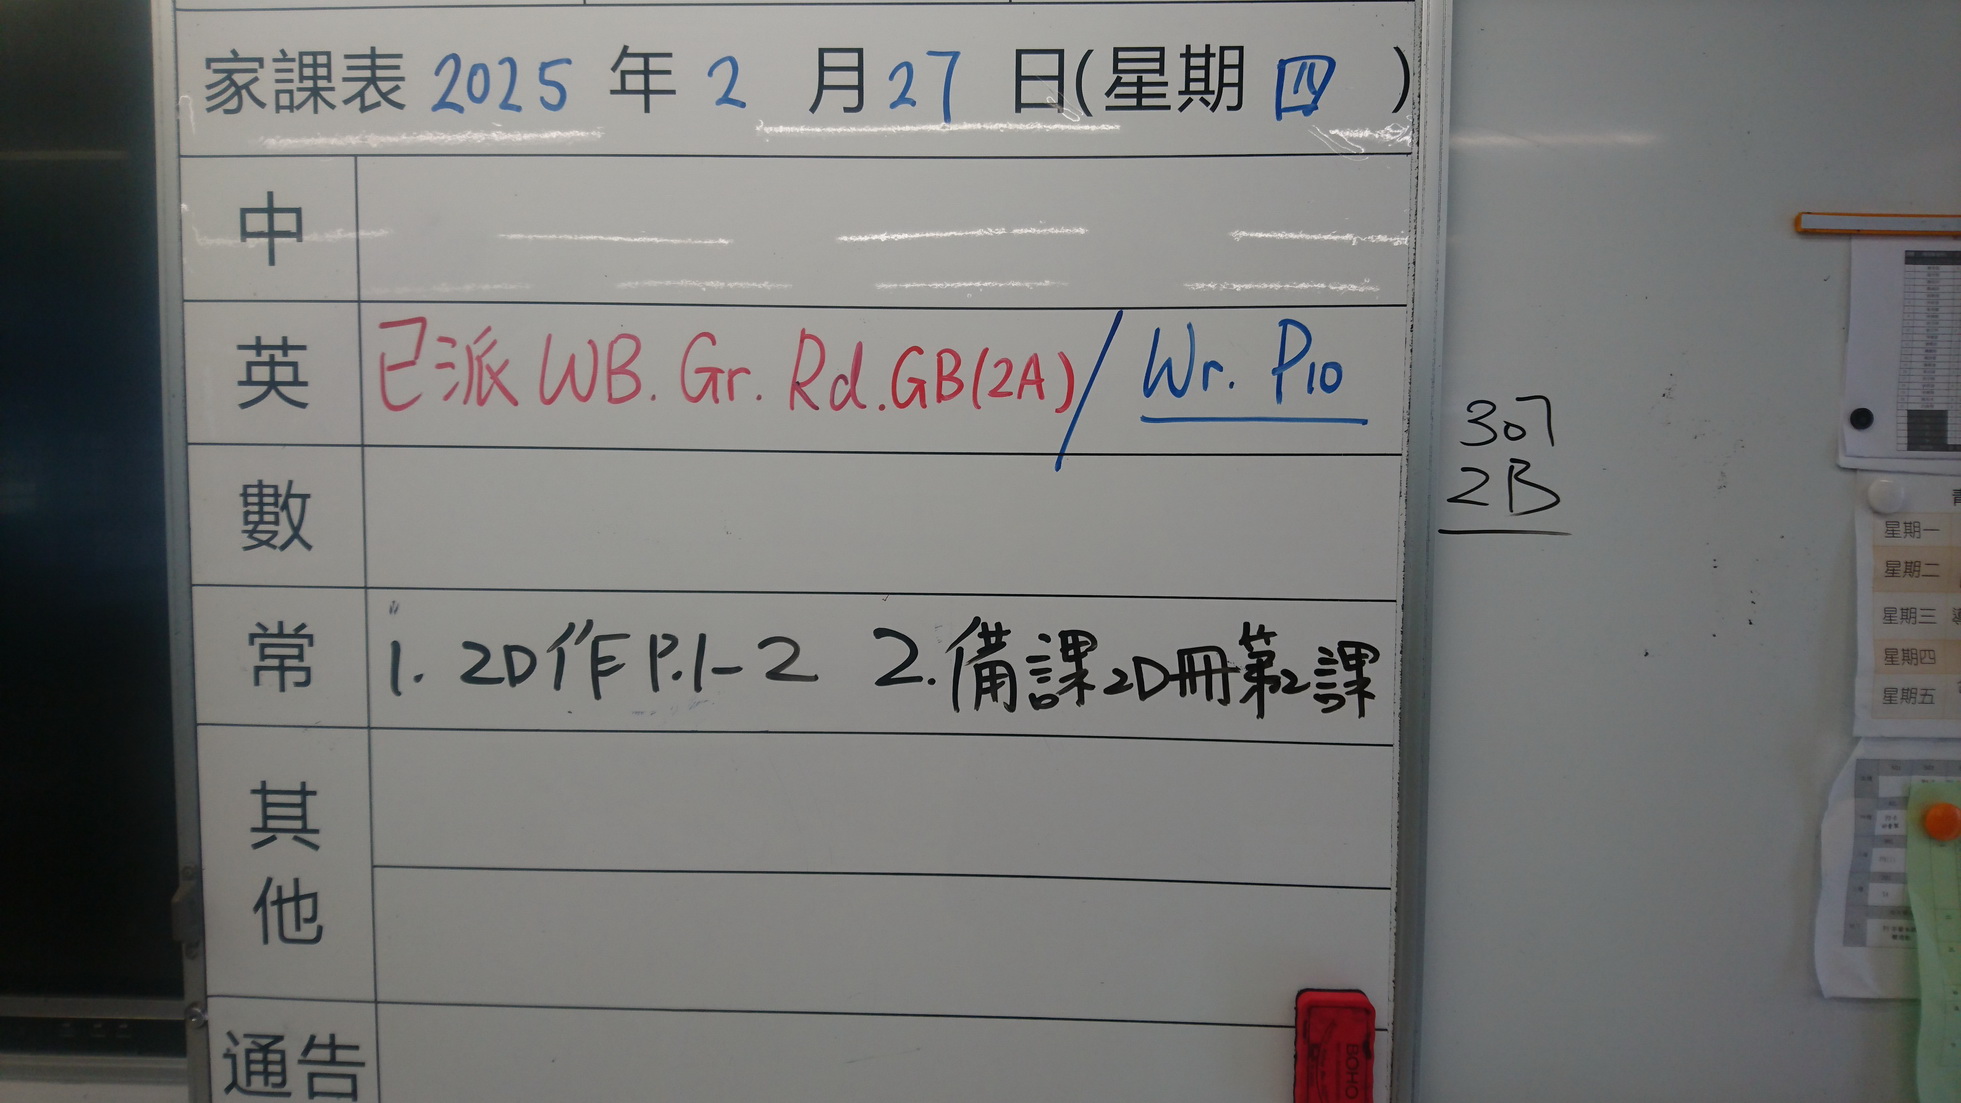 家課表 2025 年 2 月 27 日(星期 四 )
中
英 已派 WB. Gr. Rd. GB(2A) / Wr. P10
數
常 1. 2D作 P.1-2 2. 備課2D冊第2課
其他
通告
307
2B
BOHO
星期一
星期二
星期三
星期四
星期五